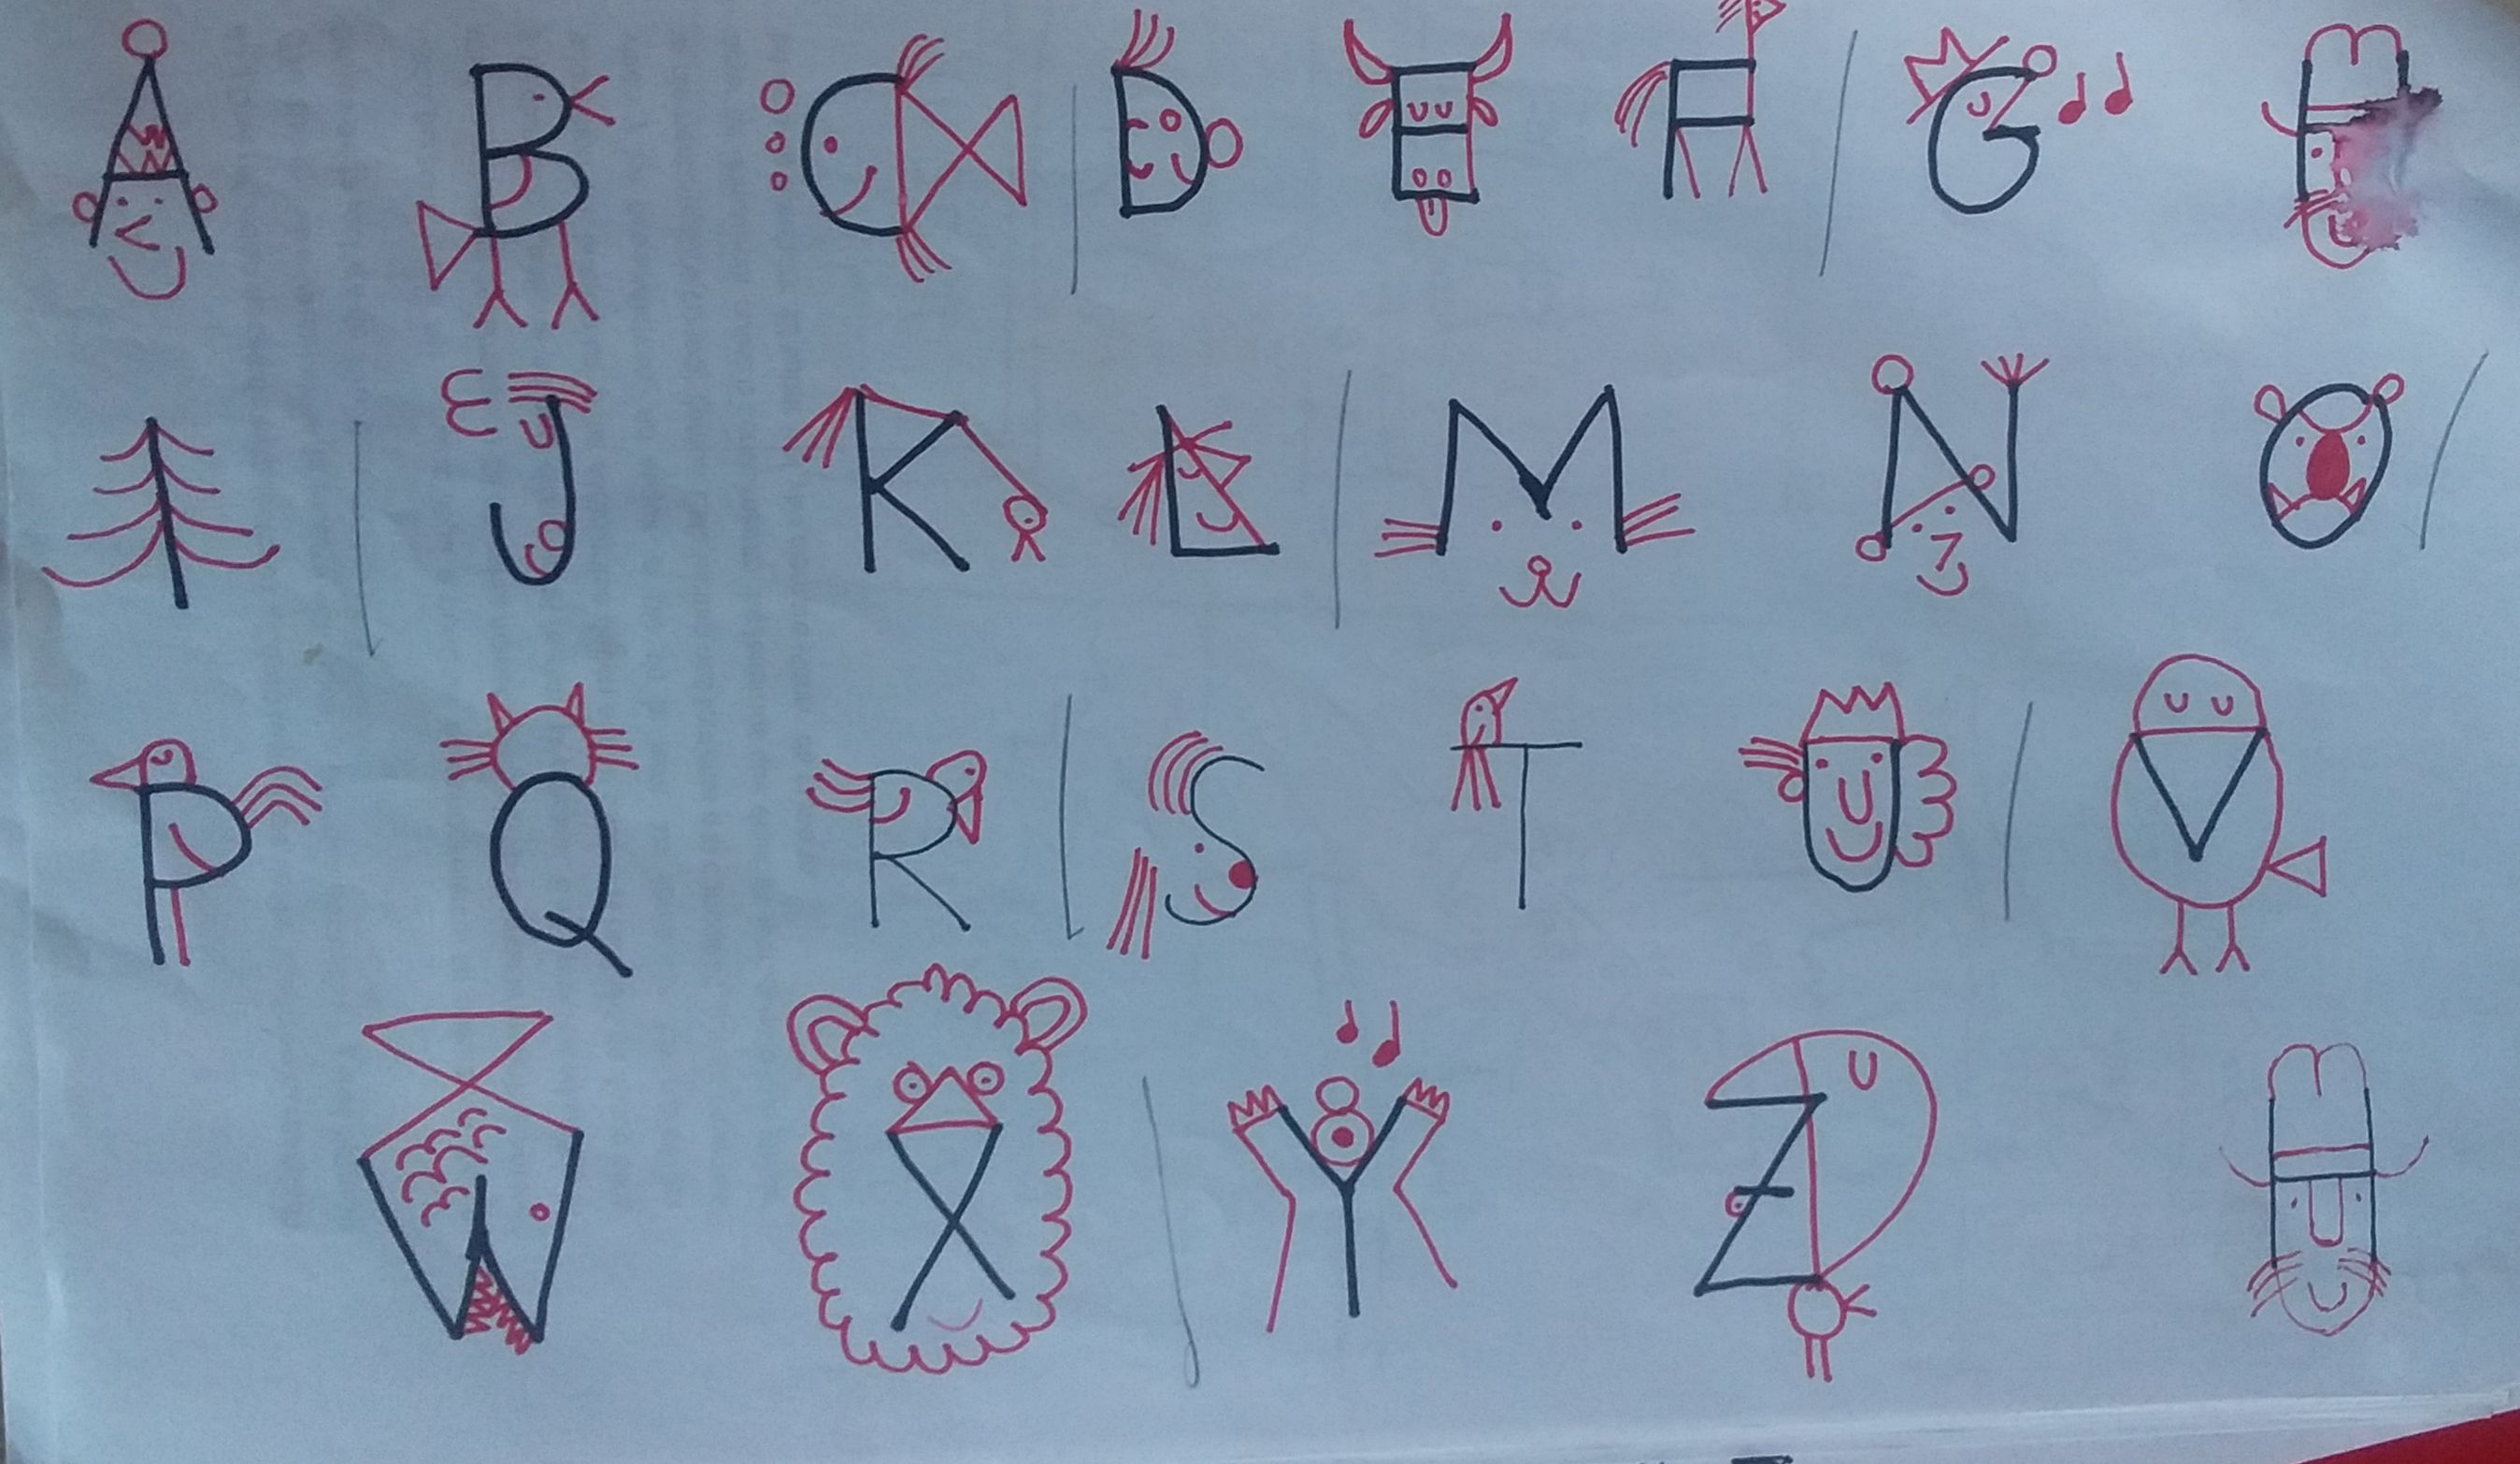 A B C D E F G H
I J K L M N O
P Q R S T U V
W X Y Z H